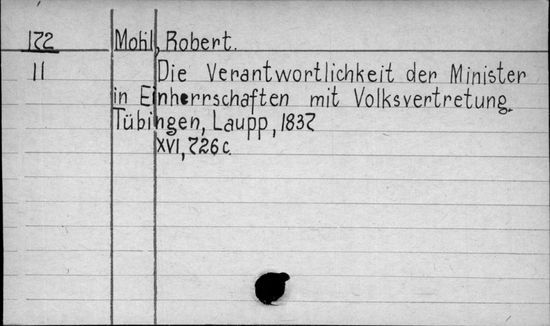 172 Mohl, Robert.
11 Die Verantwortlichkeit der Minister
in Einherrschaften mit Volksvertretung.
Tübingen, Laupp, 1837
XVI, 726 c.